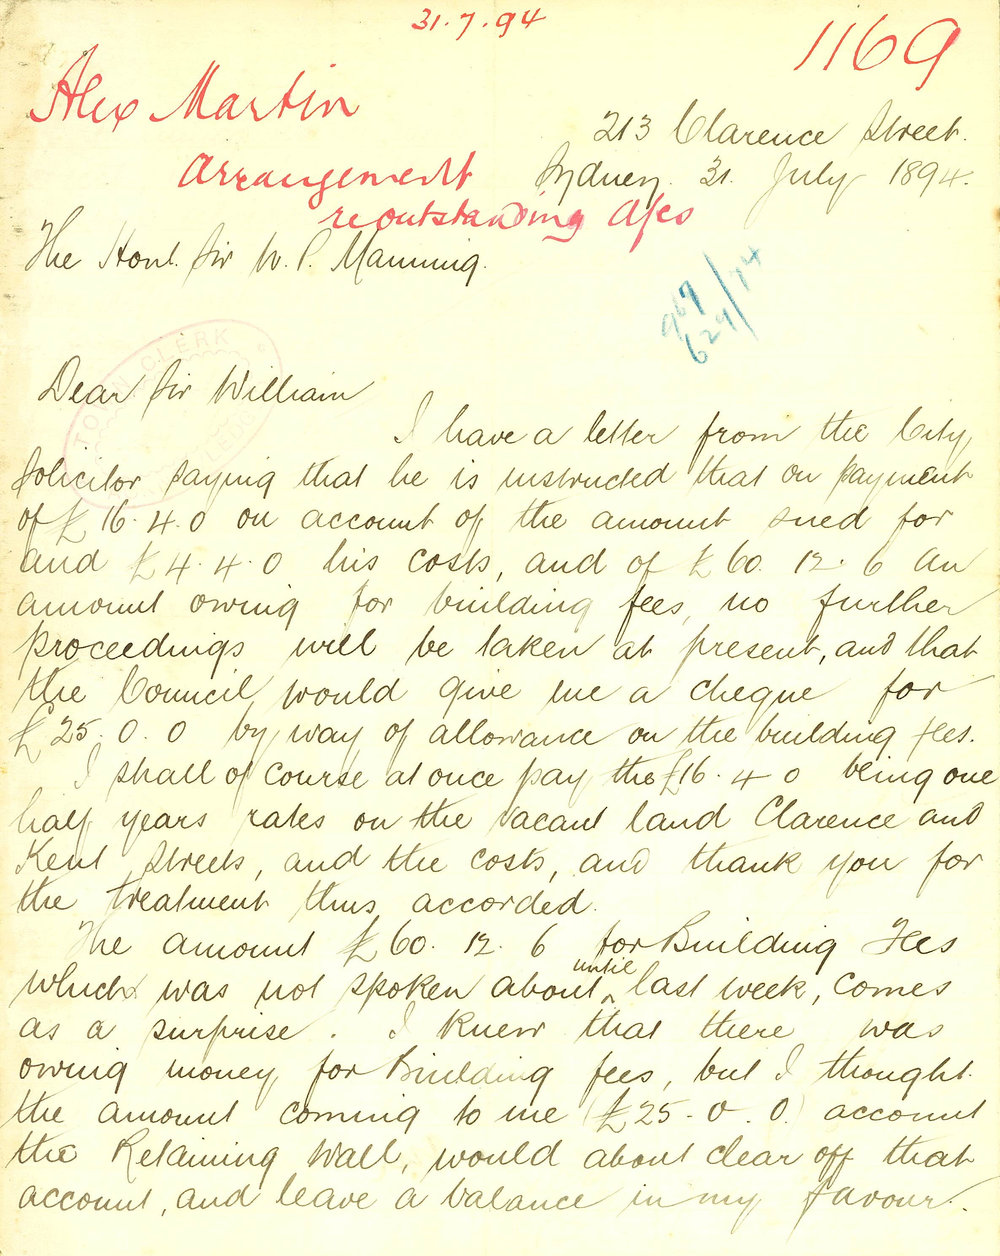 31.7.94
1169
Alex Martin
213 Clarence Street.
Arrangement
Sydney 31 July 1894.
re outstanding a/cs
The Honl. Sir W. P. Manning.
969
629/94
TOWN CLERK
Dear Sir William
I have a letter from the City
Solicitor saying that he is instructed that on payment
of £16.4.0 on account of the amount sued for
and £4.4.0 his costs, and of £60.12.6 an
amount owing for building fees, no further
proceedings will be taken at present, and that
the Council would give me a cheque for
£25.0.0 by way of allowance on the building fees.
I shall of course at once pay the £16.4.0 being one
half years rates on the vacant land Clarence and
Kent Streets, and the costs, and thank you for
the treatment thus accorded.
The amount £60.12.6 for Building Fees
which was not spoken about until last week, comes
as a surprise. I knew that there was
owing money for Building fees, but I thought
the amount coming to me (£25-0.0) account
the Retaining Wall, would about clear off that
account, and leave a balance in my favour.